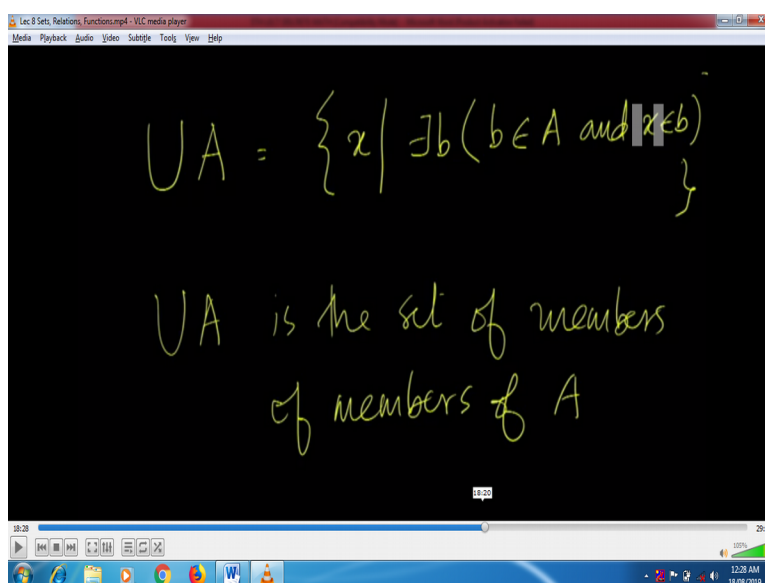 Lec 8 Sets, Relations, Functions.mp4 - VLC media player
Media Playback Audio Video Subtitle Tools View Help
UA = {x | ∃b (b ∈ A and x ∈ b)
}
UA is the set of members
of members of A
18:20
18:28 29:
105%
12:28 AM
18/08/2019